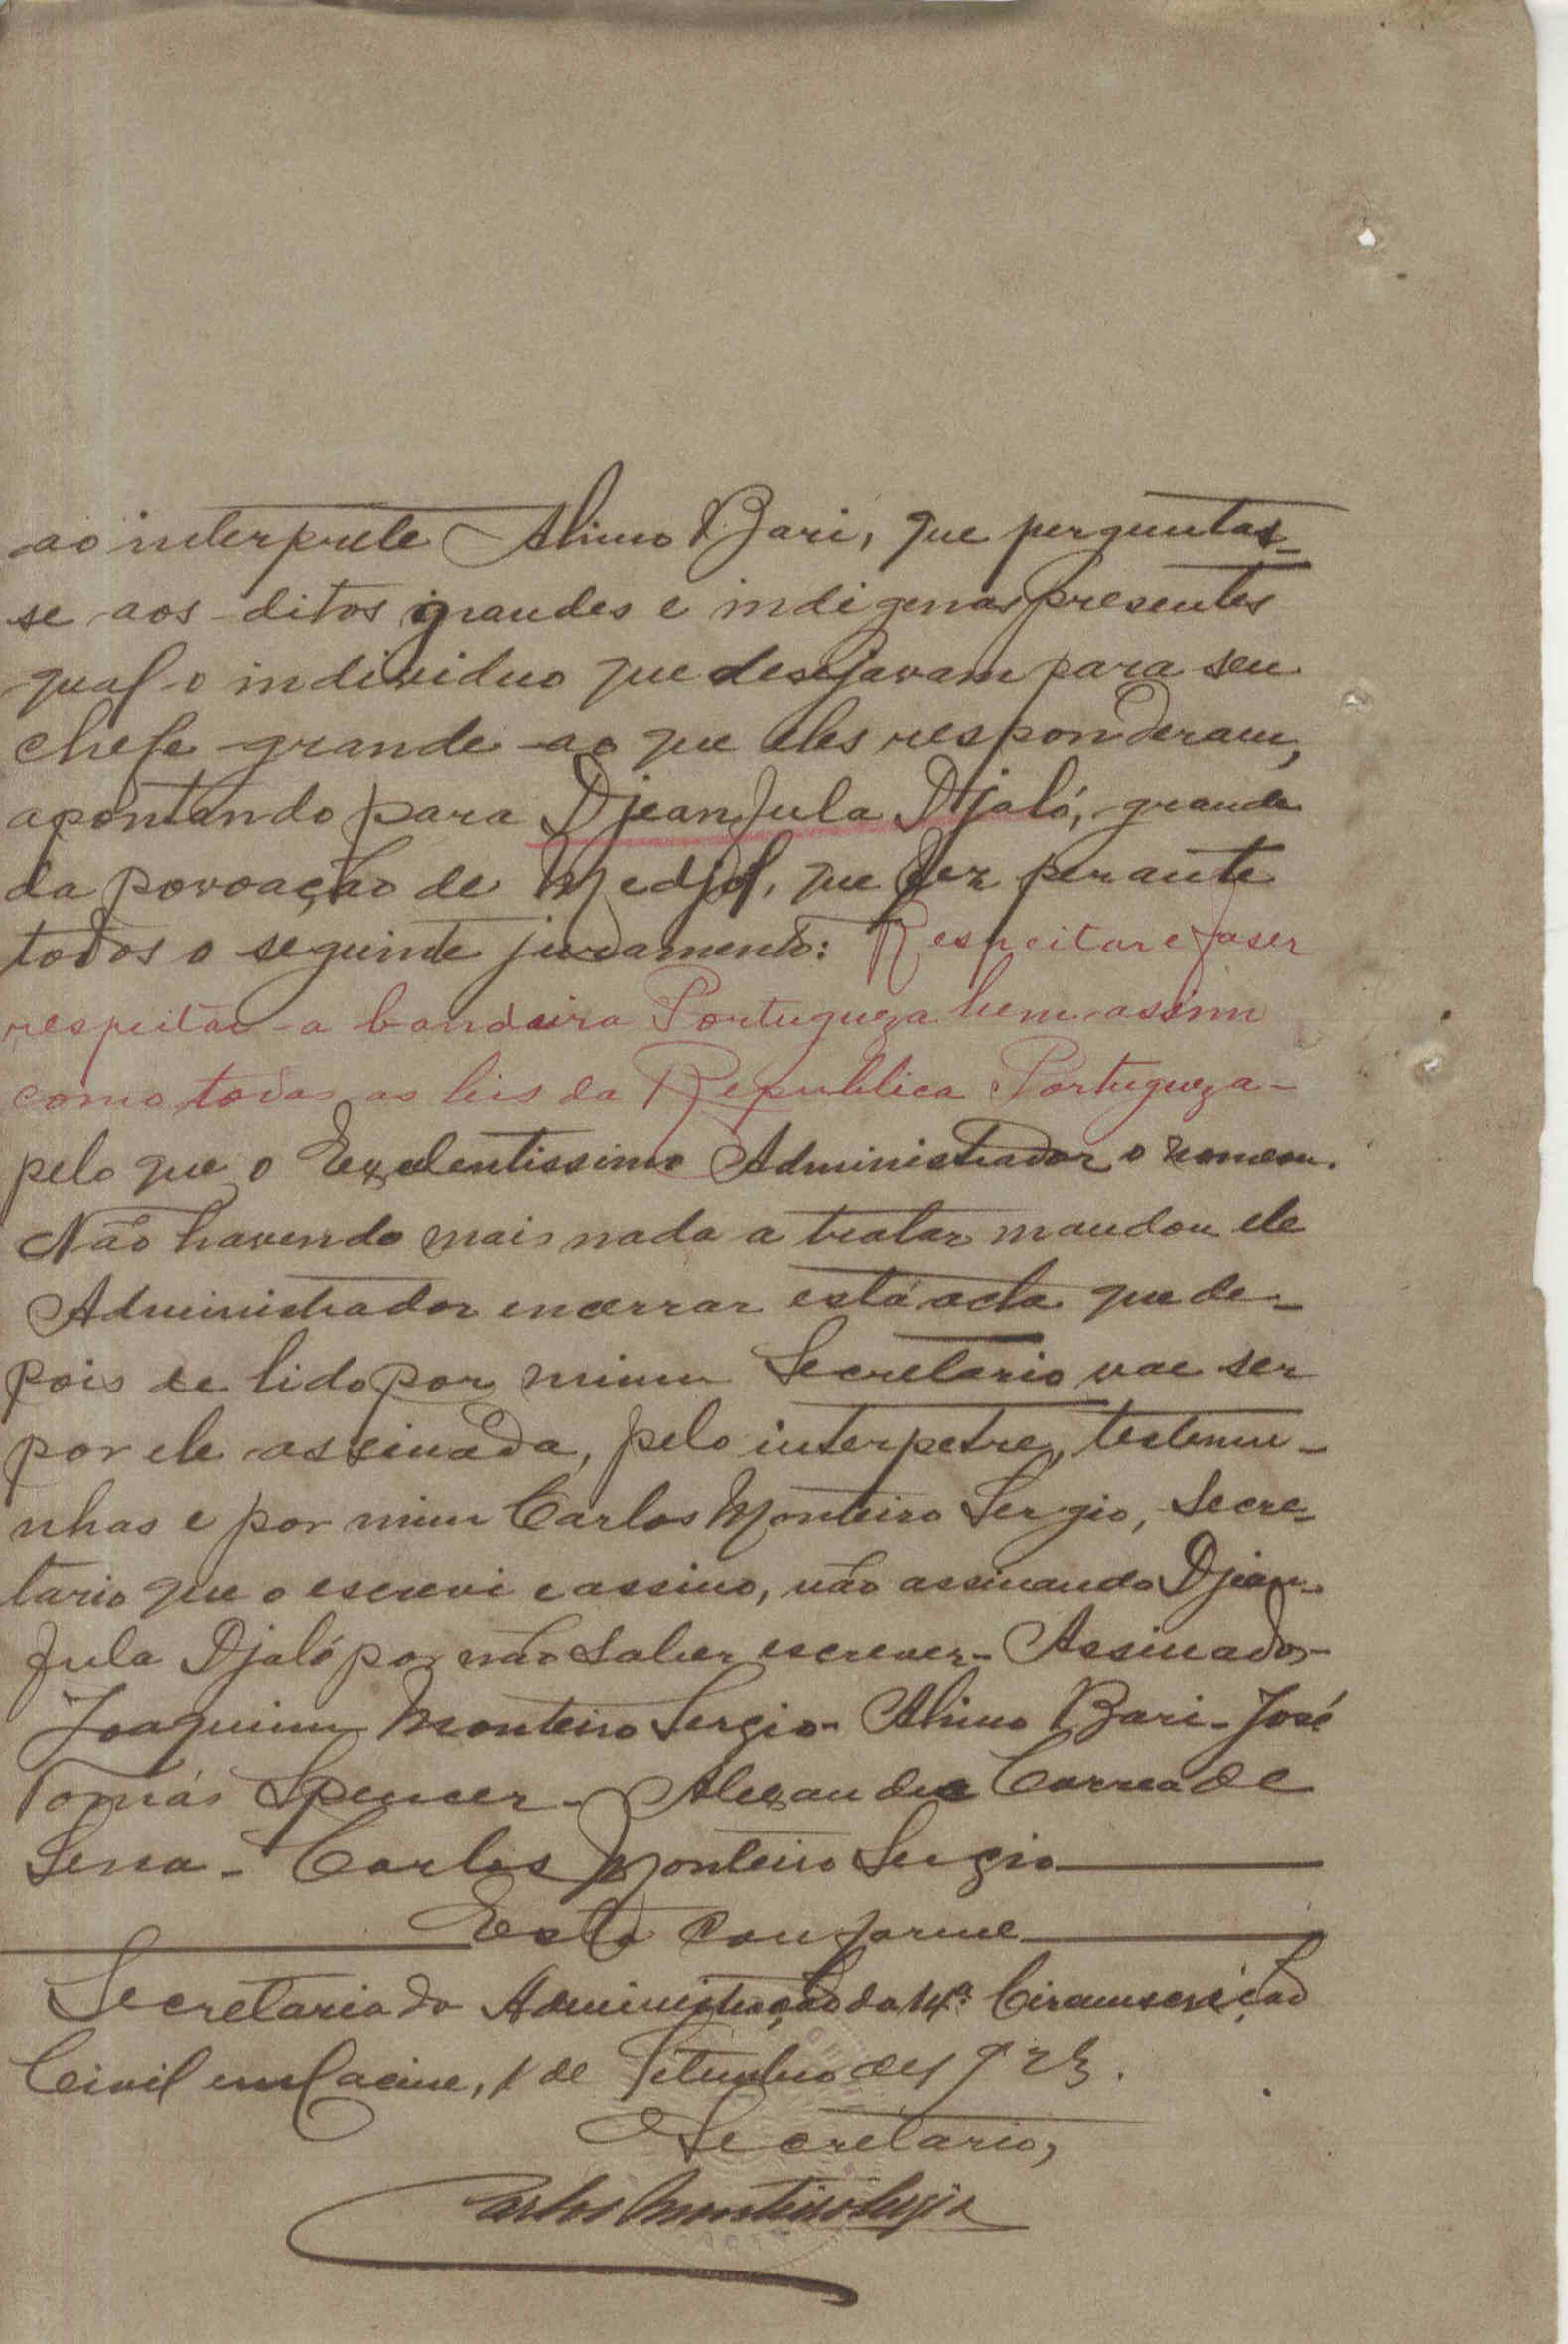 ao interprete Alimo Bari, que perguntas-
se aos ditos grandes e indigenas presentes
qual o individuo que desejavam para seu
chefe grande ao que eles responderam,
apontando para Djeanfula Djaló, grande
da povoação de Medjol, que fez perante
todos o seguinte juramento: Respeitar e faser
respeitar a bandeira Portugueza bem assim
como todas as leis da Republica Portugueza-
pelo que o Exelentissimo Administrador o nomeou.
Não havendo mais nada a tratar mandou ele
Administrador encerrar está acta que de-
pois de lido por mim Secretario vae ser
por ele assinada, pelo interpetre, testemu-
nhas e por mim Carlos Monteiro Sergio, Secre-
tario que o escrevi e assino, não assinando Djean-
fula Djaló por não saber escrever- Assinados-
Joaquim Monteiro Sergio- Alimo Bari- José
Tomás Spencer- Alexandre Correa de
Sena- Carlos Monteiro Sergio
Está conforme
Secretaria da Administração da 14ª Circumscrição
Civil em Cacine, 1 de Setembro de 1923.
O Secretario,
Carlos Monteiro Sergio